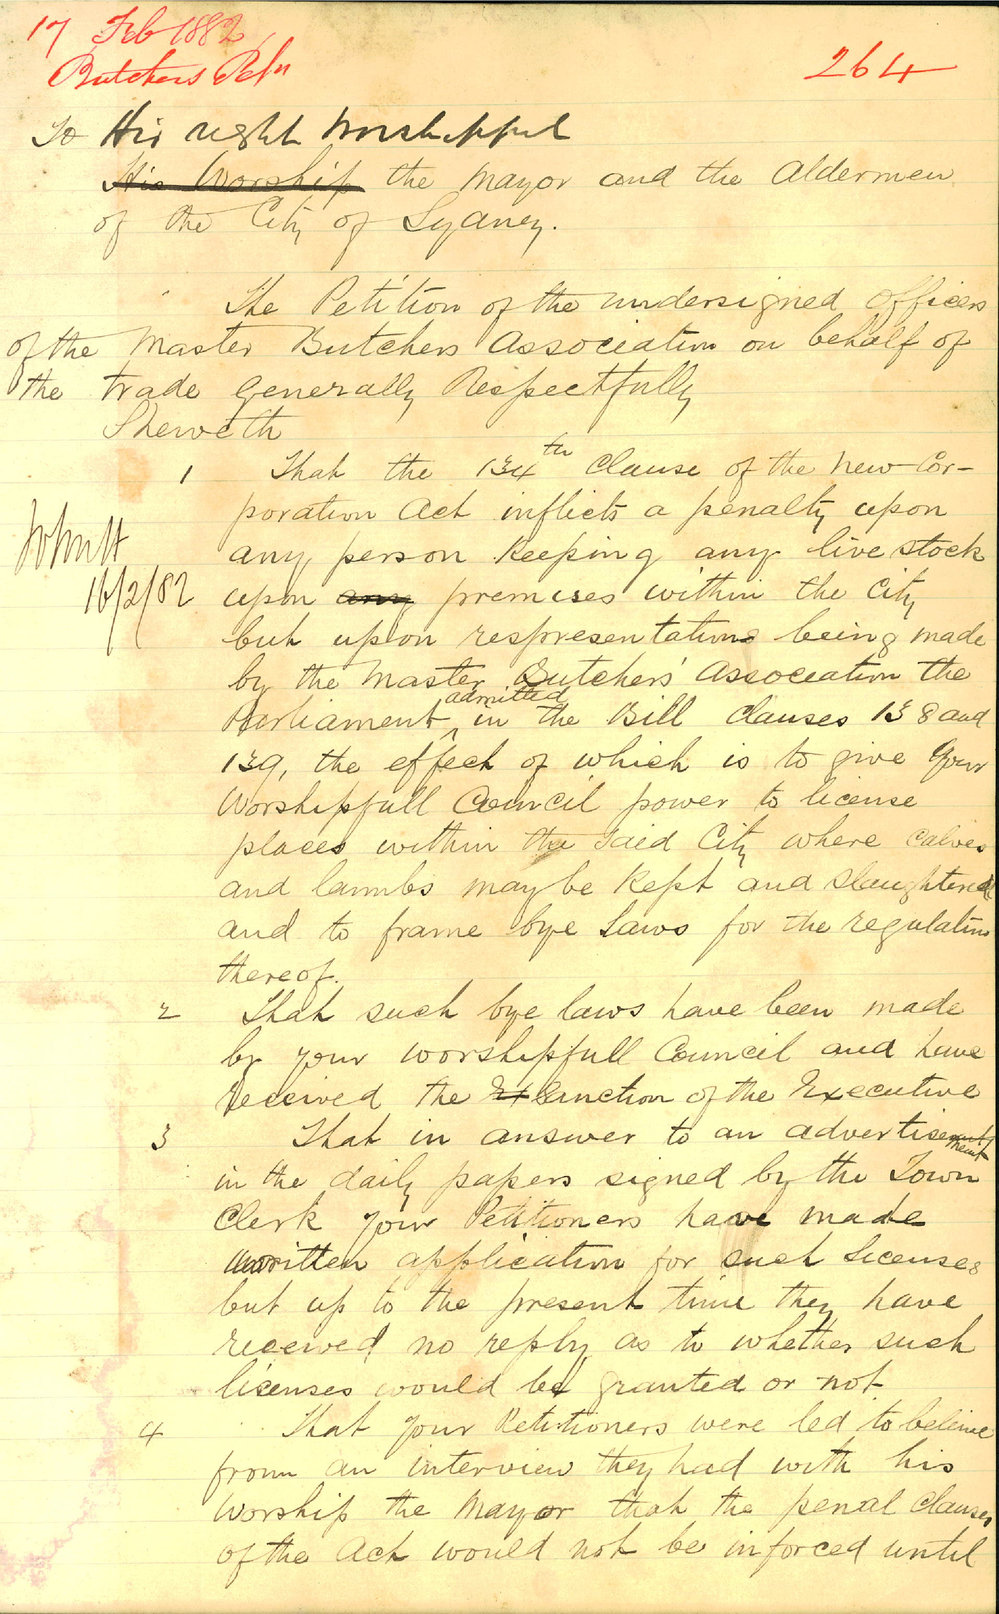 17 Feb 1882
Butchers Petn
264
To His right Worshippful
His Worship the Mayor and the Aldermen
of the City of Sydney.
The Petition of the undersigned Officers
of the Master Butchers Association on behalf of
the trade generally Respectfully
Sheweth
1 That the 134th Clause of the New Cor-
poration Act inflicts a penalty upon
any person keeping any live stock
upon any premises within the City
but upon respresentations being made
by the Master Butchers' Association the
Parliament admitted in the Bill Clauses 138 and
139, the effect of which is to give Your
Worshipfull Council power to license
places within the said City where calves
and lambs may be kept and slaughtered
and to frame bye Laws for the regulation
thereof.
16/2/82
2 That such bye laws have been made
by your worshipfull Council and have
received the Ex Sanction of the Executive
3 That in answer to an advertisement
in the daily papers signed by the Town
Clerk your Petitioners have made
written application for such Licenses
but up to the present time they have
received no reply as to whether such
licenses would be granted or not
4 That your Petitioners were led to believe
from an interview they had with his
Worship the Mayor that the penal Clauses
of the Act would not be inforced until